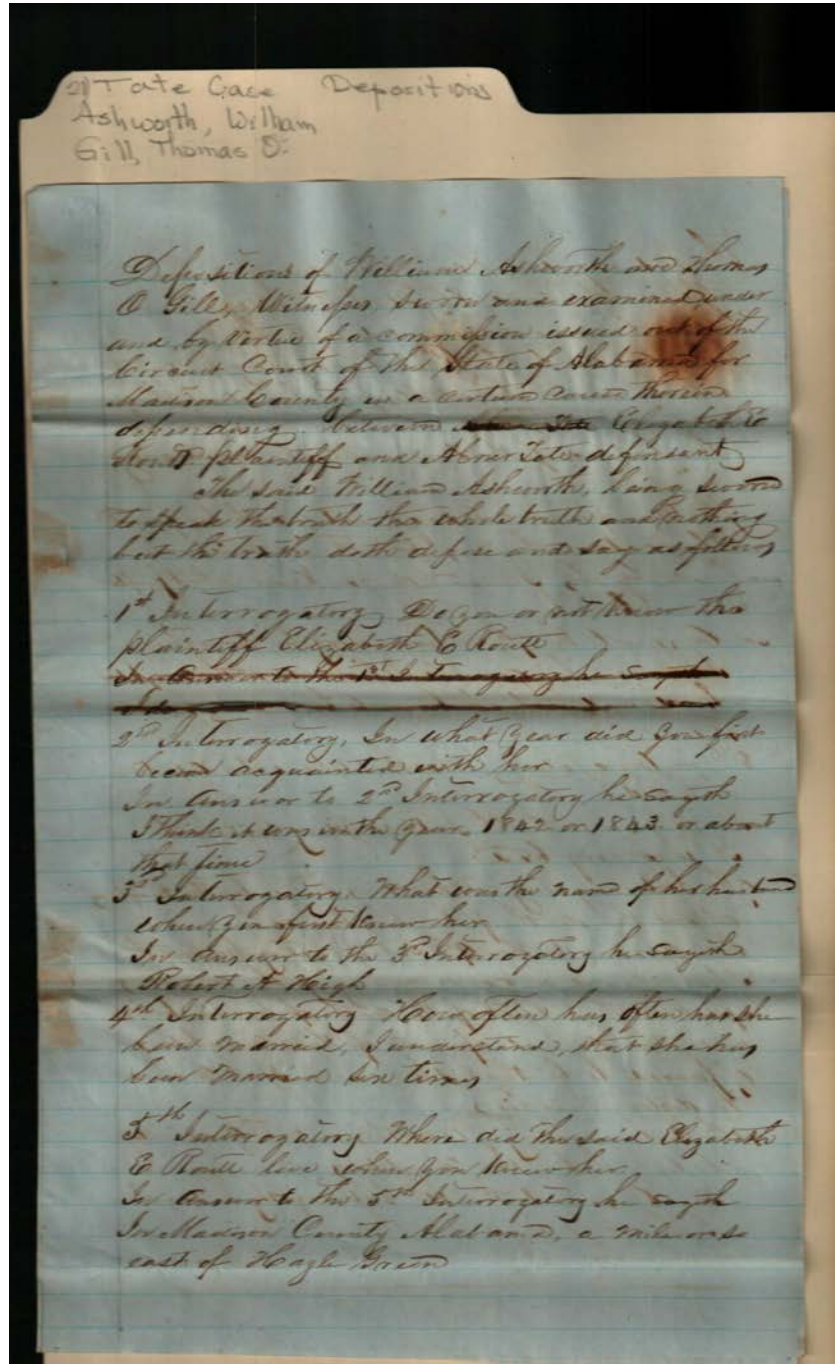 21 Tate Case Depositions
Ashworth, William
Gill, Thomas O.
Depositions of William Ashworth and Thomas
O Gill, Witnesses sworn and examined under
and by virtue of a commission issued out of the
Circuit Court of the State of Alabama for
Madison County in a certain cause therein
depending between Elizabeth E
Routt plaintiff and Abner Tate defendant
The said William Ashworth, being sworn
to speak the truth the whole truth and nothing
but the truth doth depose and say as follows
1st Interrogatory Do you or not know the
plaintiff Elizabeth E Routt
In answer to the 1st Interrogatory he sayth
I do
2nd Interrogatory, In what year did you first
become acquainted with her
In answer to 2nd Interrogatory he sayth
I think it was in the year 1842 or 1843 or about
that time
3d Interrogatory What was the name of her husband
when you first knew her
In answer to the 3d Interrogatory he sayth
Robert A High
4th Interrogatory How often has often has she
been married, I understand, that she has
been married six times
5th Interrogatory Where did the said Elizabeth
E Routt live when you knew her
In answer to the 5th Interrogatory he sayth
In Madison County Alabama, a mile or so
east of Hazle Green